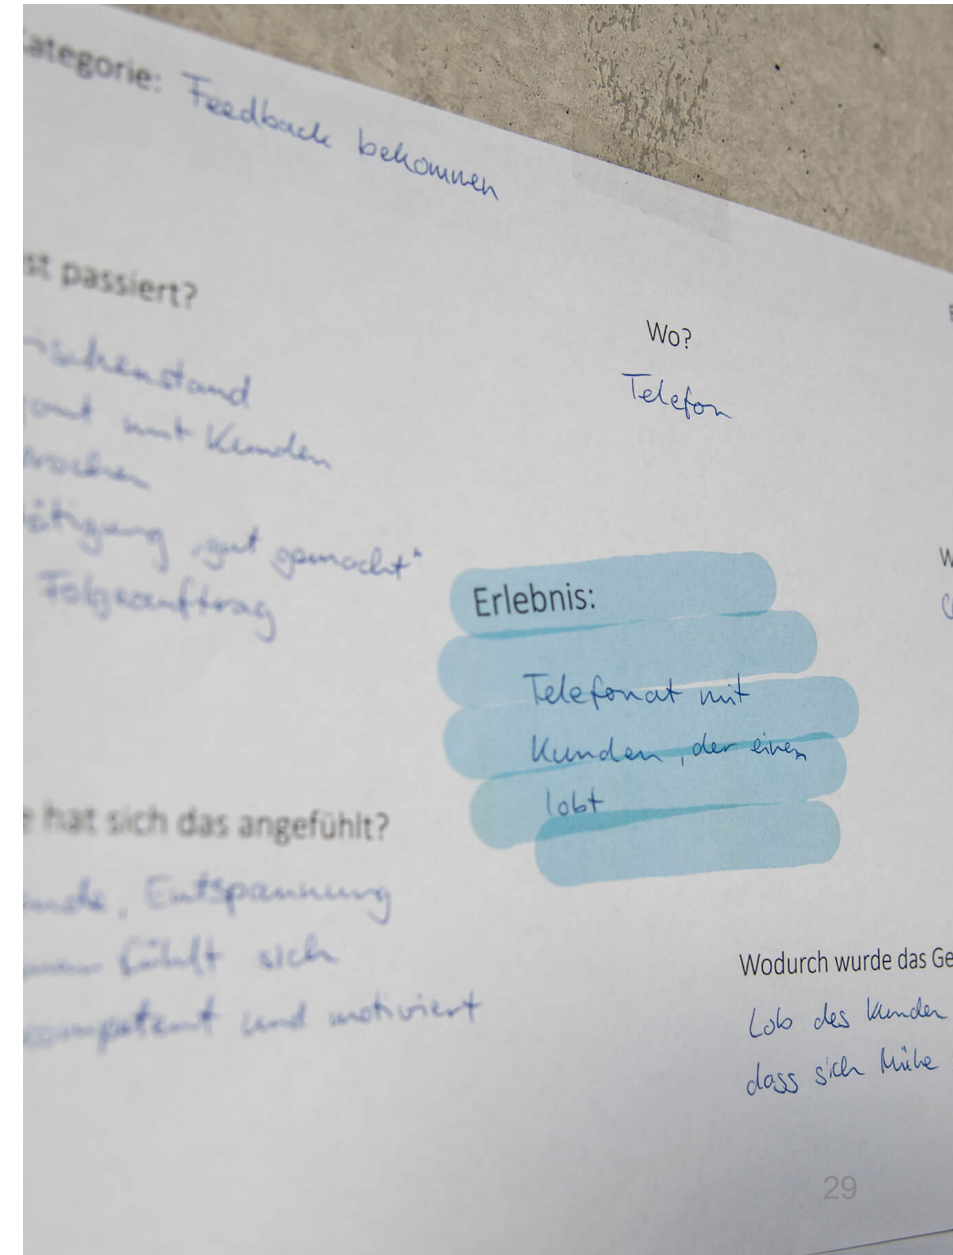 Kategorie: Feedback bekommen
st passiert?
Wo?
Telefon
schenstand
mit Kunden
sprochen
stätigung „gut gemacht“
Folgeauftrag
Erlebnis:
Telefonat mit
Kunden, der einen
lobt
hat sich das angefühlt?
Entspannung
man fühlt sich
kompetent und motiviert
Wodurch wurde das Ge
Lob des Kunden
dass sich Mühe
29